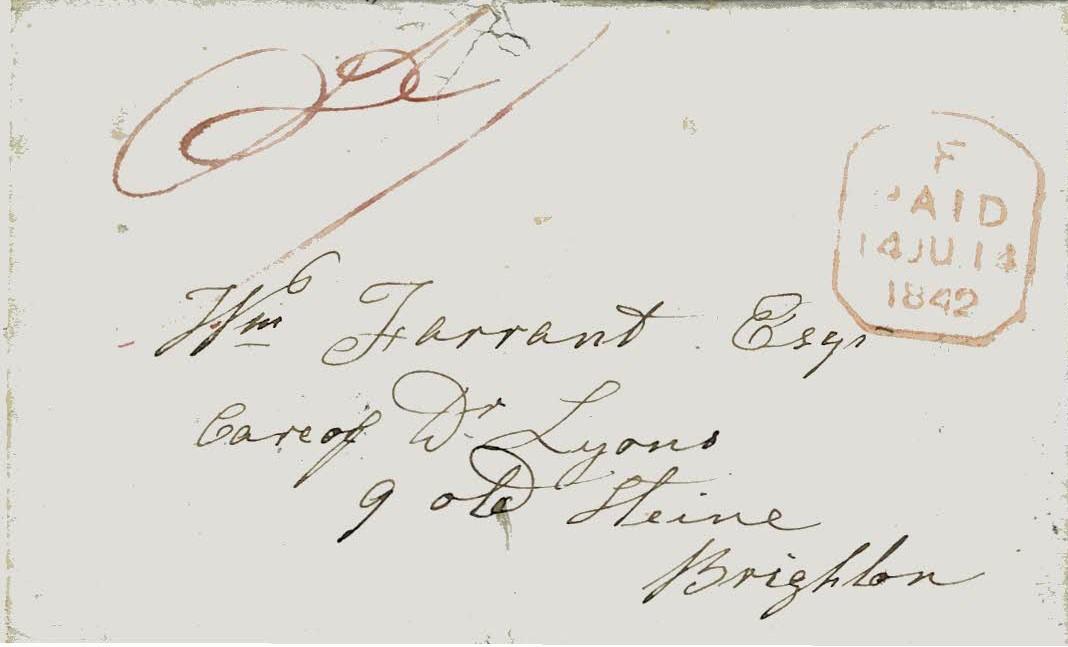 F
PAID
14 JU 14
1842
Wm Farrant Esqr
Care of Dr Lyons
9 old Steine
Brighton